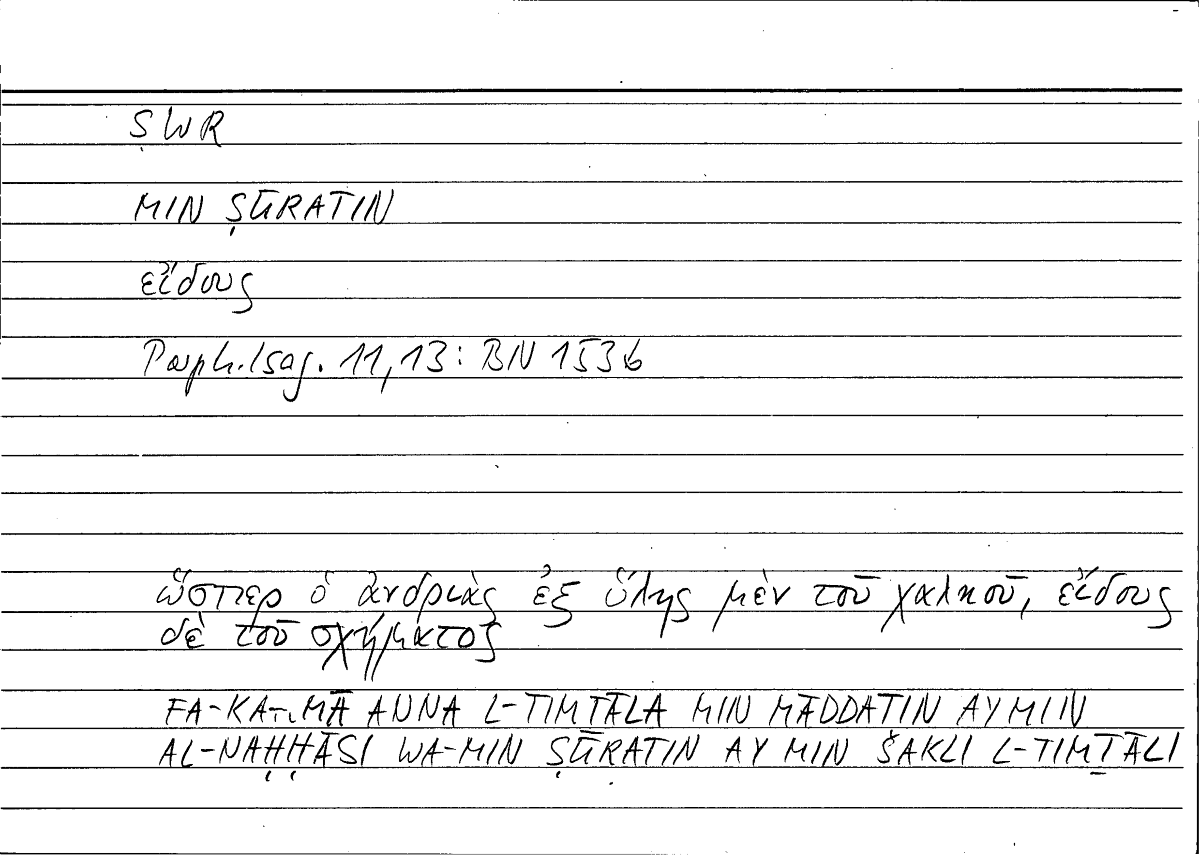 ṢWR
MIN ṢŪRATIN
εἴδους
Porph. Isag. 11,13: BN 153b
ὥσπερ ὁ ἀνδριὰς ἐξ ὕλης μὲν τοῦ χαλκοῦ, εἴδους
δὲ τοῦ σχήματος
FA-KA-MĀ ANNA L-TIMṮĀLA MIN MĀDDATIN AY MIN
AL-NAḤḤĀSI WA-MIN ṢŪRATIN AY MIN ŠAKLI L-TIMṮĀLI